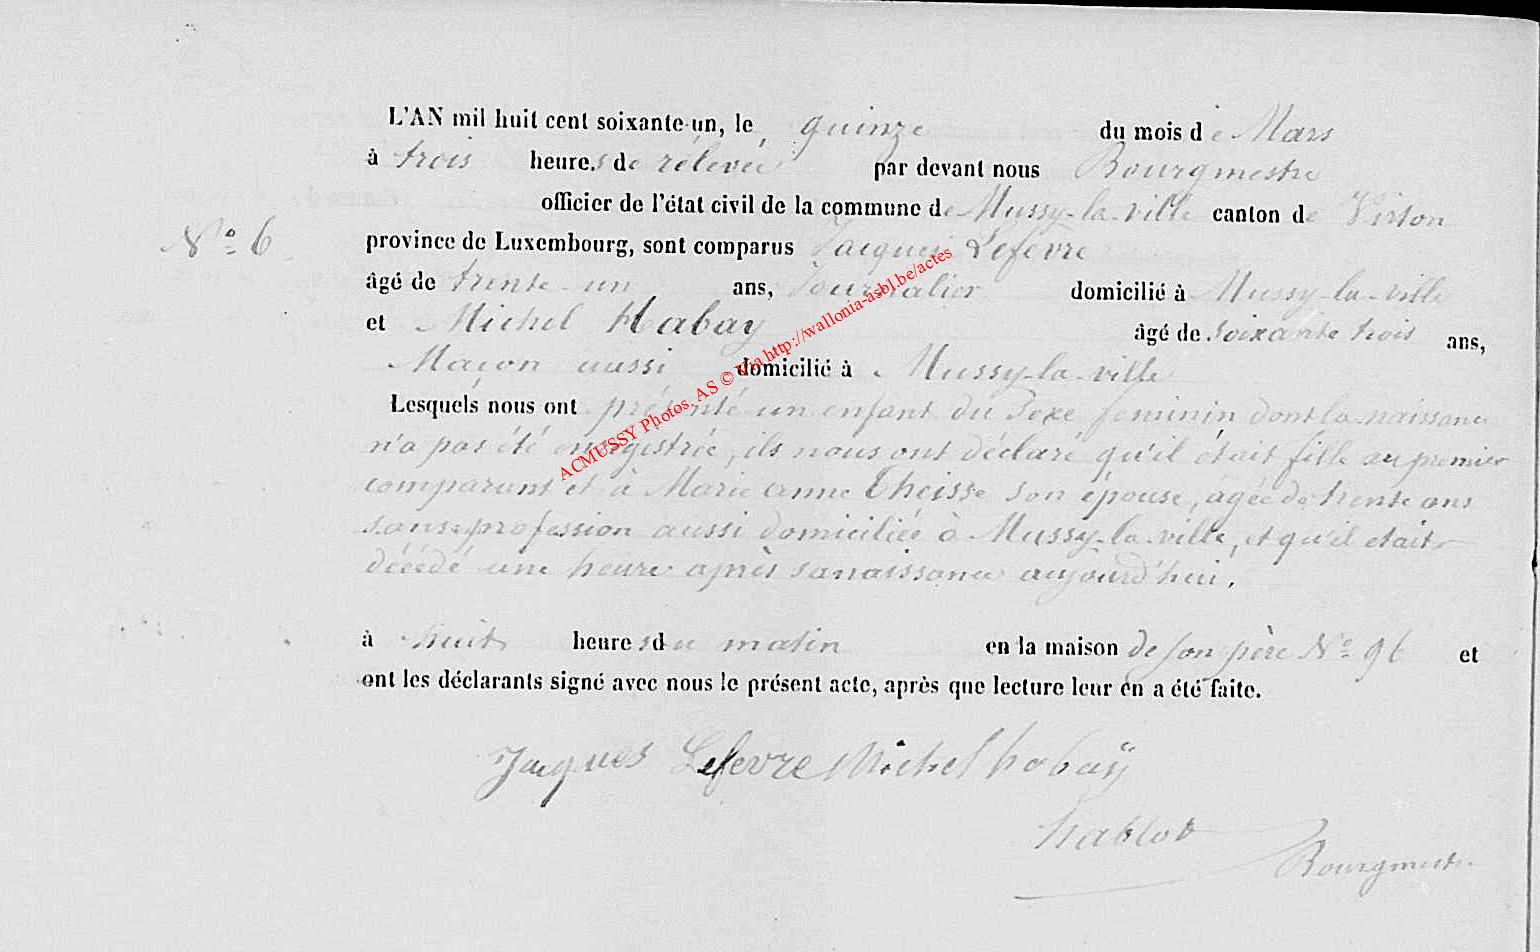 L'AN mil huit cent soixante-un, le quinze du mois de Mars
à trois heures de rélevée par devant nous Bourgmestre
officier de l'état civil de la commune de Mussy-la-ville canton de Virton
N° 6
province de Luxembourg, sont comparus Jacques Lefevre
âgé de trente-un ans, Journalier domicilié à Mussy-la-ville
et Michel Habay âgé de soixante trois ans,
Maçon aussi domicilié à Mussy-la-ville
Lesquels nous ont présenté un enfant du sexe feminin dont la naissance
n'a pas été enregistrée, ils nous ont déclaré qu'il était fille au premier
comparant et à Marie anne Theisse son épouse, agée de trente ans
sans profession aussi domiciliée à Mussy-la-ville, et qu'il etait
décédé une heure après sa naissance aujourd'hui,
à huit heures du matin en la maison de son père N° 96 et
ont les déclarants signé avec nous le présent acte, après que lecture leur en a été faite.
Jacques Lefevre Michel habaÿ
hablot
Bourgmestre
ACMUSSY Photos. AS © Via http://wallonia-asbl.be/actes